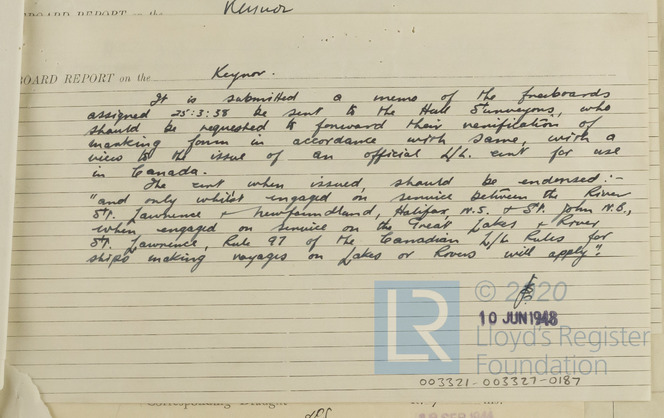 BOARD REPORT on the
Keynor
BOARD REPORT on the Keynor.
It is submitted a memo of the freeboards
assigned 25:3:38 be sent to the Hull Surveyors, who
should be requested to forward their verification of
marking form in accordance with same, with a
view to the issue of an official L/L. cert for use
in Canada.
The cert when issued, should be endorsed:-
"and only whilst engaged on service between the River
St. Lawrence & Newfoundland, Halifax, N.S. & St. John N.B.,
when engaged on service on the Great Lakes & River
St. Lawrence, Rule 97 of the Canadian L/L Rules for
ships making voyages on Lakes or Rivers will apply".
10 JUN 1948
© 2020
LR
Lloyd's Register
Foundation
003321-003327-0187
Corresponding Draught